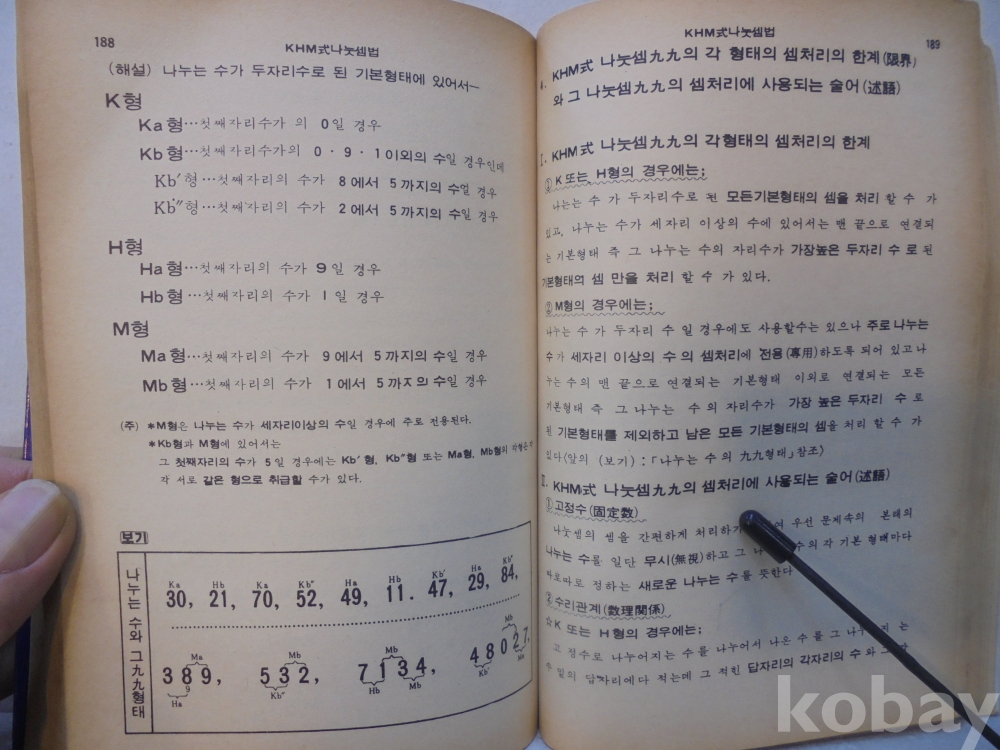 188
KHM式나눗셈법
(해설) 나누는 수가 두자리수로 된 기본형태에 있어서—
K형
Ka형…첫째자리수가 의 0일 경우
Kb형…첫째자리수가의 0·9·1이외의 수일 경우인데
Kb′형…첫째자리의 수가 8에서 5까지의 수일 경우
Kb″형…첫째자리의 수가 2에서 5까지의 수일 경우
H형
Ha형…첫째자리의 수가 9일 경우
Hb형…첫째자리의 수가 1일 경우
M형
Ma형…첫째자리의 수가 9에서 5까지의 수일 경우
Mb형…첫째자리의 수가 1에서 5까지의 수일 경우
(주) *M형은 나누는 수가 세자리이상의 수일 경우에 주로 전용된다.
*Kb형과 M형에 있어서는
그 첫째자리의 수가 5일 경우에는 Kb′형, Kb″형 또는 Ma형, Mb형의
각 서로 같은 형으로 취급할 수가 있다.
보기
나누는 수와 그 九九형태
Ka Hb Ka Kb″ Ha Hb Kb′ Ha Kb″
30, 21, 70, 52, 49, 11. 47, 29, 84,
Ma Mb Mb Mb
389, 532, 7134, 48027,
9
Ha Kb″ Hb Mb Kb″ Ma
189
KHM式나눗셈법
KHM式 나눗셈九九의 각 형태의 셈처리의 한계(限界)
와 그 나눗셈九九의 셈처리에 사용되는 술어(述語)
I. KHM式 나눗셈九九의 각형태의 셈처리의 한계
① K또는 H형의 경우에는;
나눈는 수 가 두자리수로 된 모든기본형태의 셈을 처리 할 수 가
있고, 나누는 수가 세자리 이상의 수에 있어서는 맨 끝으로 연결되
는 기본형태 즉 그 나누는 수의 자리수가 가장높은 두자리 수 로 된
기본형태의 셈 만을 처리 할 수 가 있다.
② M형의 경우에는;
나누는 수 가 두자리 수 일 경우에도 사용할수는 있으나 주로 나누는
수가 세자리 이상의 수 의 셈처리에 전용(専用)하도록 되어 있고 나
누는 수의 맨 끝으로 연결되는 기본형태 이외로 연결되는 모든
기본형태 즉 그 나누는 수 의 자리수가 가장 높은 두자리 수 로
된 기본형태를 제외하고 남은 모든 기본형태의 셈을 처리 할 수 가
있다(앞의 (보기) : 「나누는 수의 九九형태」참조)
II. KHM式 나눗셈九九의 셈처리에 사용되는 술어(述語)
① 고정수(固定数)
나눗셈의 셈을 간편하게 처리하기 우선 문제속의 본래의
나누는 수를 일단 무시(無視)하고 그 수의 각 기본 형태마다
따로따로 정하는 새로운 나누는 수를 뜻한다
② 수리관계(数理関係)
☆K 또는 H형의 경우에는;
고 정수로 나누어지는 수를 나누어서 나온 수를 그 는
수 일의 답자리에다 적는데 그 적힌 답자리의 각자리의 수와
kobay